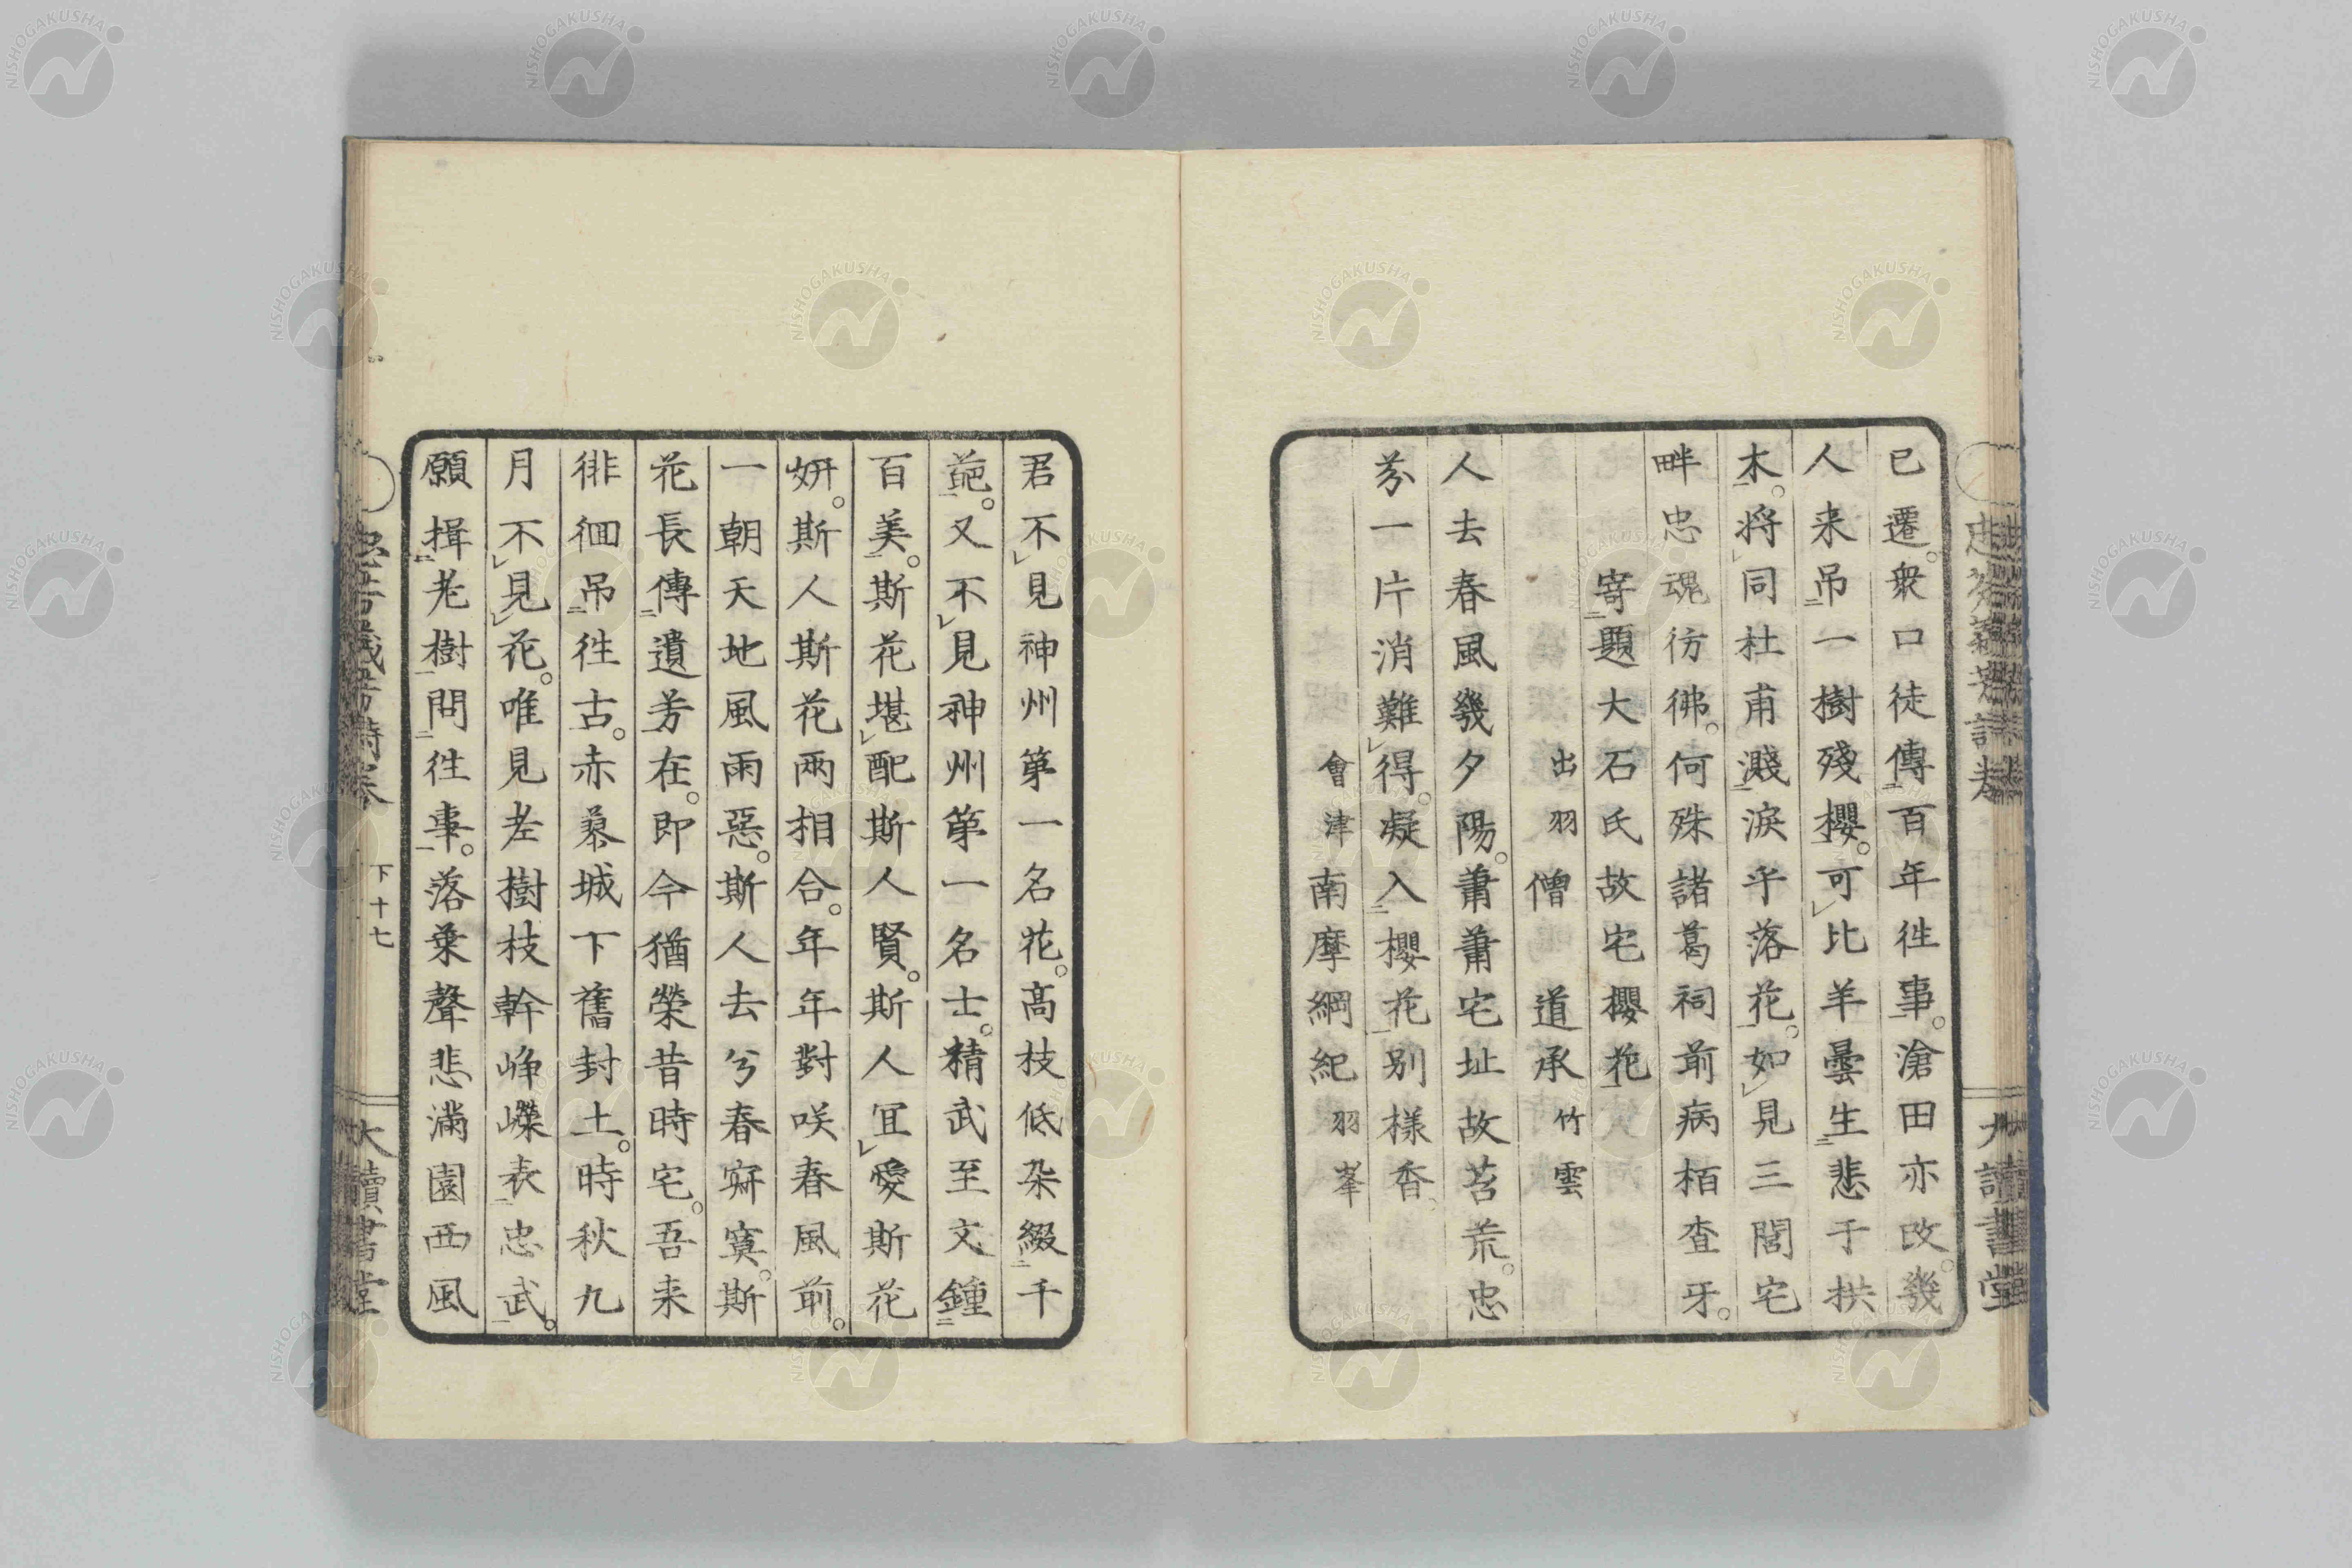 已遷。衆口徒傳百年徃事。滄田亦改。幾
人来吊一樹殘櫻。可比羊曇生悲于拱
木。将同杜甫濺淚乎落花。如見三閭宅
畔忠魂彷彿。何殊諸葛祠前病栢査牙。
寄題大石氏故宅櫻花
出羽 僧 道承 竹雲
人去春風幾夕陽。蕭蕭宅址故苔荒。忠
芬一片消難得。凝入櫻花别様香。
會津 南摩綱紀 羽峯
君不見神州第一名花。高枝低朶綴千
葩。又不見神州第一名士。精武至文鍾
百美。斯花堪配斯人賢。斯人宜愛斯花
妍。斯人斯花兩相合。年年對咲春風前。
一朝天地風雨惡。斯人去兮春寂寞。斯
花長傳遺芳在。即今猶榮昔時宅。吾来
徘徊吊徃古。赤穂城下舊封土。時秋九
月不見花。唯見老樹枝幹崢嶸表忠武。
願揖老樹問徃事。落葉聲悲滿園西風
下十七
大讀書堂
NISHOGAKUSHA